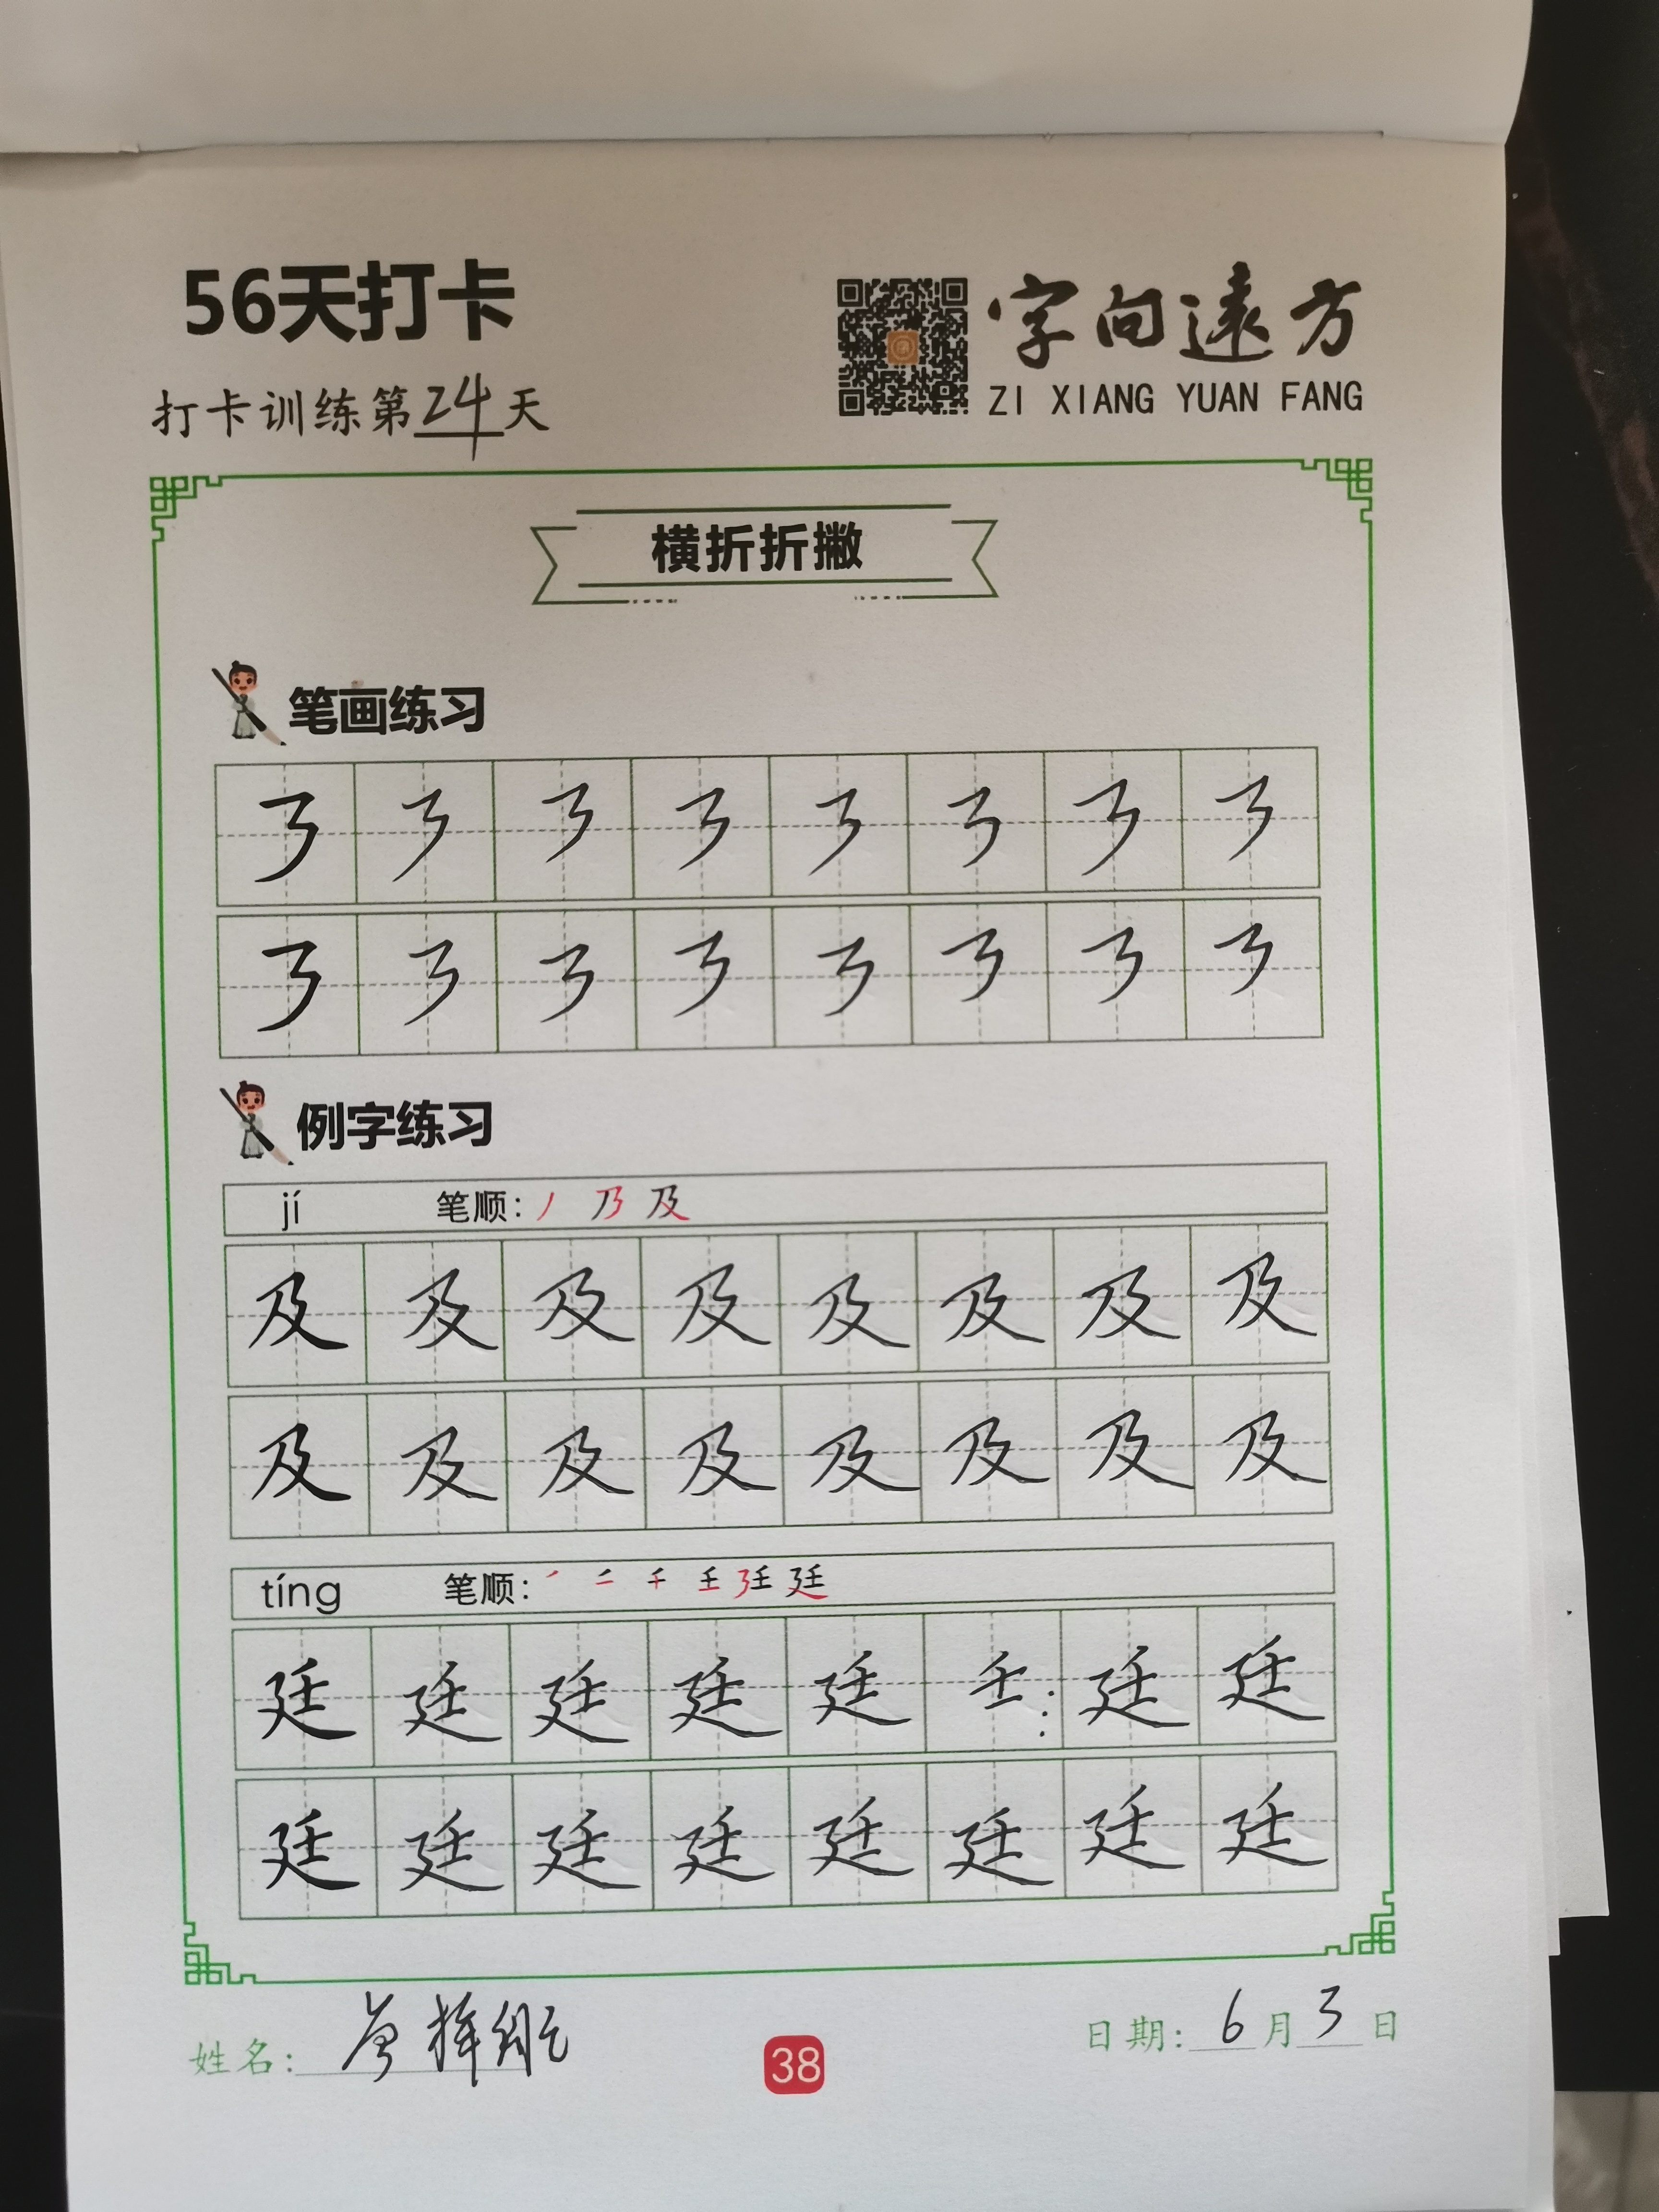 56天打卡
字向遠方
ZI XIANG YUAN FANG
打卡训练第24天
横折折撇
笔画练习
㇋ ㇋ ㇋ ㇋ ㇋ ㇋ ㇋ ㇋
㇋ ㇋ ㇋ ㇋ ㇋ ㇋ ㇋ ㇋
例字练习
jí 笔顺：丿 乃 及
及 及 及 及 及 及 及 及
及 及 及 及 及 及 及 及
tíng 笔顺：㇒ 二 千 壬 廷 廷
廷 廷 廷 廷 廷 壬 廷 廷
廷 廷 廷 廷 廷 廷 廷 廷
姓名：
38
日期：6月3日